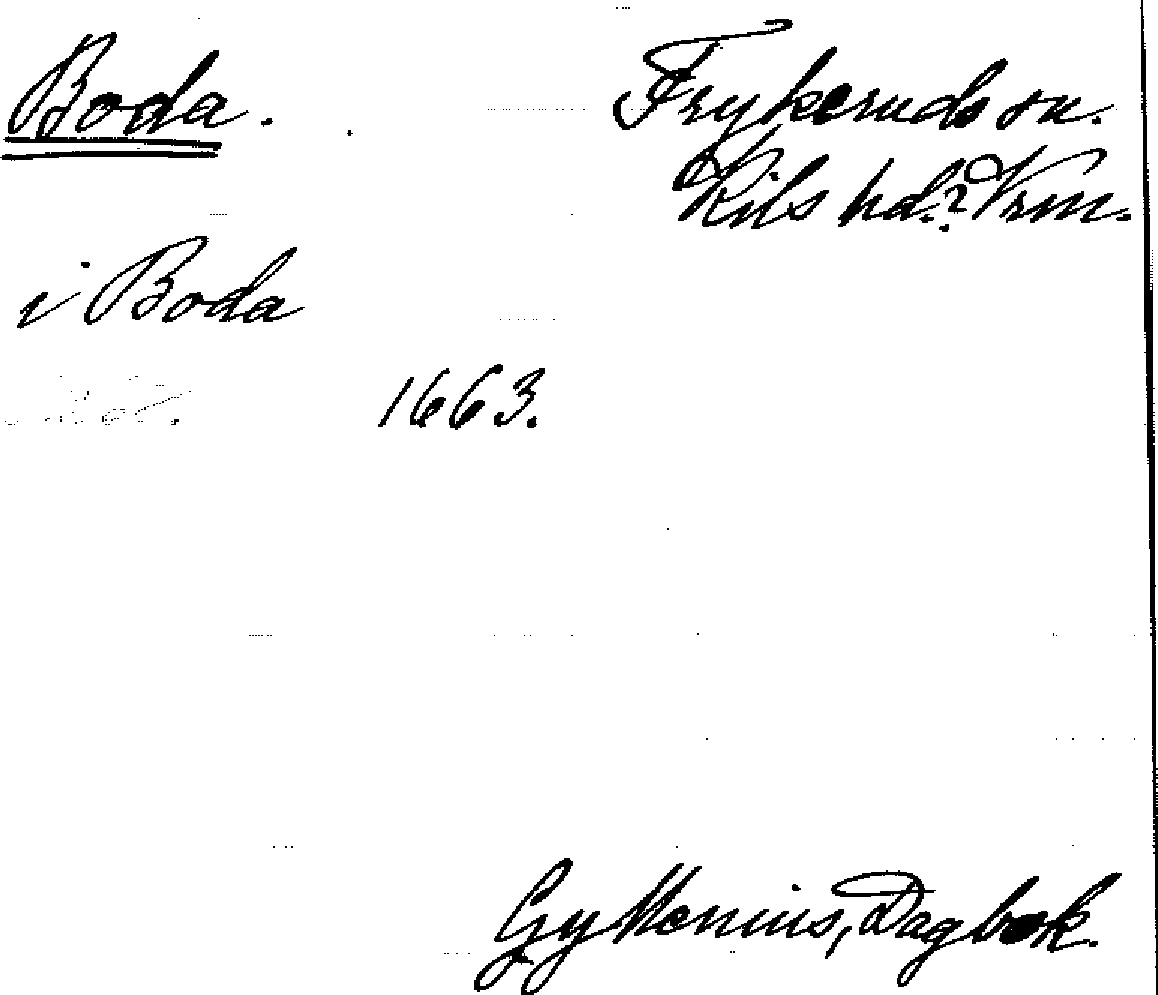 Boda.
Frykeruds sn.
Kils hd.? Vrm.
i Boda
1663.
Gyllenius, Dagbok.